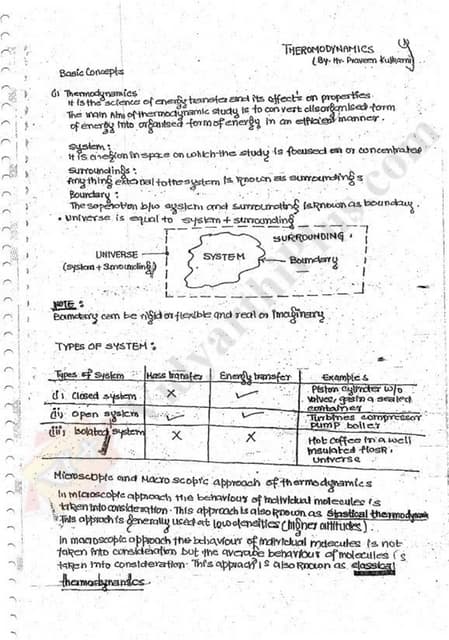 THEROMODYNAMICS
(By- Mr. Praveen Kulkarni)
Basic Concepts
(i) Thermodynamics
It is the science of energy transfer and its effect's on properties.
The main Aim of thermodynamic study is to convert disorganised form
of energy into organised form of energy in an efficient manner.
System:
It is a region in space on which the study is focused on or concentrates
Surroundings:
Anything external to the system is known as surroundings
Boundary:
The seperation b/w system and surrounding is known as boundary.
• Universe is equal to system + surrounding
SURROUNDING.
UNIVERSE
SYSTEM
Boundary
(system + Surrounding)
NOTE:
Boundary can be rigid or flexible and real or Imaginary
TYPES OF SYSTEM:
Types of System Mass transfer Energy transfer Examples
(i) Closed system × ✓ Piston cylinder w/o
valves, gas in a sealed
container
(ii) Open system ✓ ✓ Turbines compressor
pump boiler
(iii) Isolated system × × Hot coffee in a well
insulated flask,
universe
Microscopic and Macroscopic approach of thermodynamics
In microscopic approach the behaviour of individual molecules is
taken into consideration. This approach is also known as
This approach is generally used at low densities (higher altitudes).
In macroscopic approach the behaviour of individual molecules is not
taken into consideration but the average behaviour of molecules is
taken into consideration. This approach is also known as classical
thermodynamics